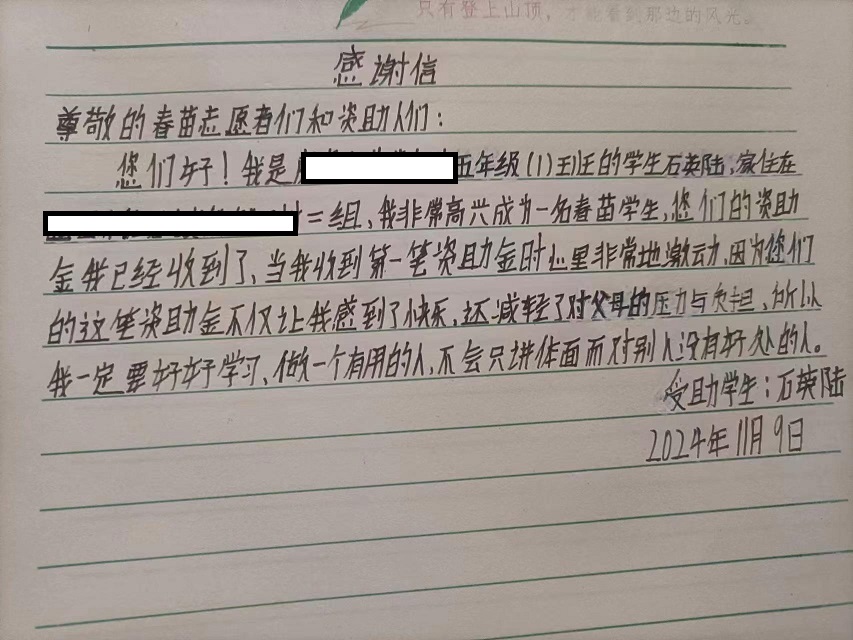 只有登上山顶，才能看到那边的风光。
感谢信
尊敬的春苗志愿者们和资助人们：
您们好！我是五年级（1）班的学生石英陆，家住在
二组、我非常高兴成为一名春苗学生，您们的资助
金我已经收到了、当我收到第一笔资助金时心里非常地激动，因为您们
的这笔资助金不仅让我感到了快乐，还减轻了对父母的压力与负担，所以
我一定要好好学习、做一个有用的人，不会只讲体面而对别人没有好处的人。
受助学生：石英陆
2024年11月9日